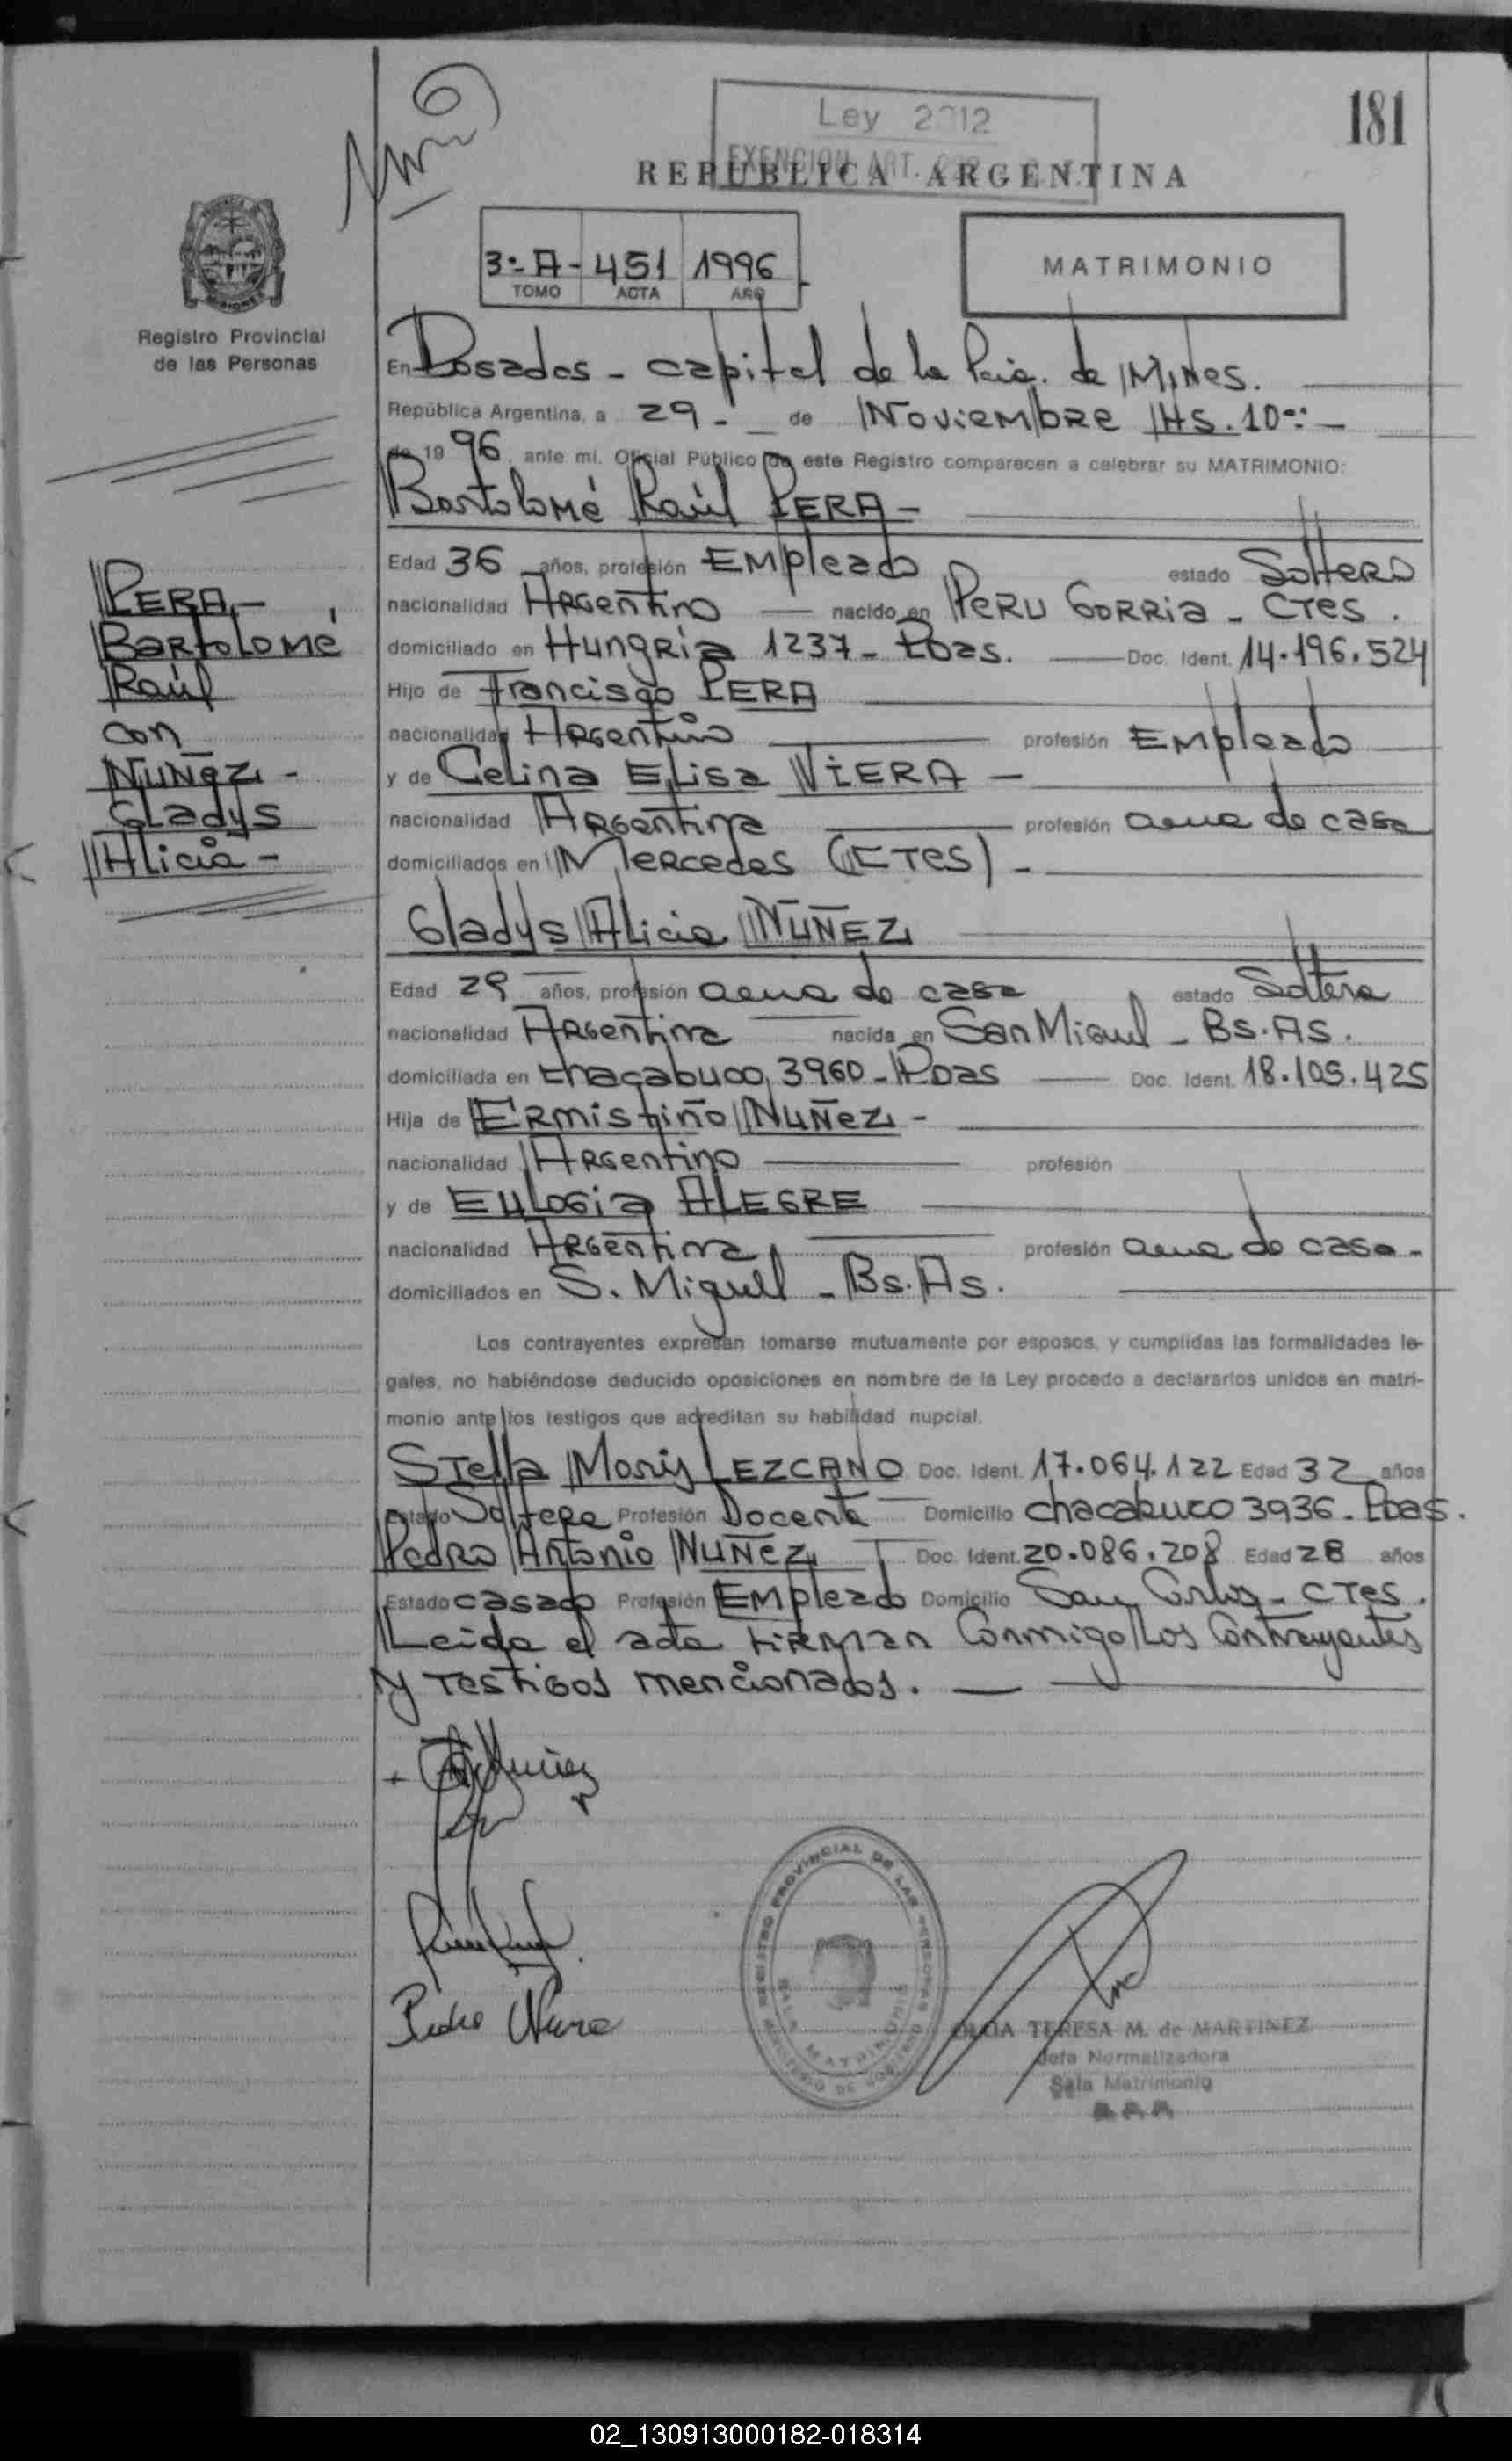 181
Ley 2312
EXENCION ART.
REPUBLICA ARGENTINA
3º-A- 451 1996
TOMO ACTA AÑO
MATRIMONIO
Registro Provincial
de las Personas
En Posadas - capital de la Pcia. de Mnes.
República Argentina, a 29 - de Noviembre HS. 10:: -
de 1996, ante mí, Oficial Público de este Registro comparecen a celebrar su MATRIMONIO:
Bartolomé Raúl PERA -
Edad 36 años, profesión Empleado estado Soltero
nacionalidad Argentino nacido en PERU GORRia - CTes.
domiciliado en Hungria 1237 - Pdas. Doc. Ident. 14.196.524
Hijo de Francisco PERA
nacionalidad Argentino profesión Empleado
y de Celina Elisa VIERA -
nacionalidad Argentina profesión ama de casa
domiciliados en Mercedes (CTes) -
PERA -
Bartolomé
Raúl
con
Nuñez -
Gladys
Alicia -
Gladys Alicia NUÑEZ
Edad 29 años, profesión ama de casa estado Soltera
nacionalidad Argentina nacida en San Miguel - Bs. As.
domiciliada en chacabuco 3960 - Pdas Doc. Ident. 18.109.425
Hija de Ermistiño Nuñez -
nacionalidad Argentino profesión
y de Eulogia ALEGRE
nacionalidad Argentina profesión ama de casa -
domiciliados en S. Miguel - Bs. As.
Los contrayentes expresan tomarse mutuamente por esposos, y cumplidas las formalidades le-
gales, no habiéndose deducido oposiciones en nombre de la Ley procedo a declararlos unidos en matri-
monio ante los testigos que acreditan su habilidad nupcial.
Stella Maris LEZCANO Doc. Ident. 17.064.122 Edad 32 años
Estado Soltera Profesión Docente Domicilio chacabuco 3936 - Pdas.
Pedro Antonio Nuñez Doc. Ident. 20.086.208 Edad 28 años
Estado casado Profesión Empleado Domicilio San Carlos - CTes.
Leida el acta firman Conmigo Los Contrayentes
y Testigos mencionados.
REGISTRO PROVINCIAL DE LAS PERSONAS
SALA MATRIMONIO
MINISTERIO DE GOBIERNO
OLGA TERESA M. de MARTINEZ
Jefa Normalizadora
Sala Matrimonio
02_130913000182-018314